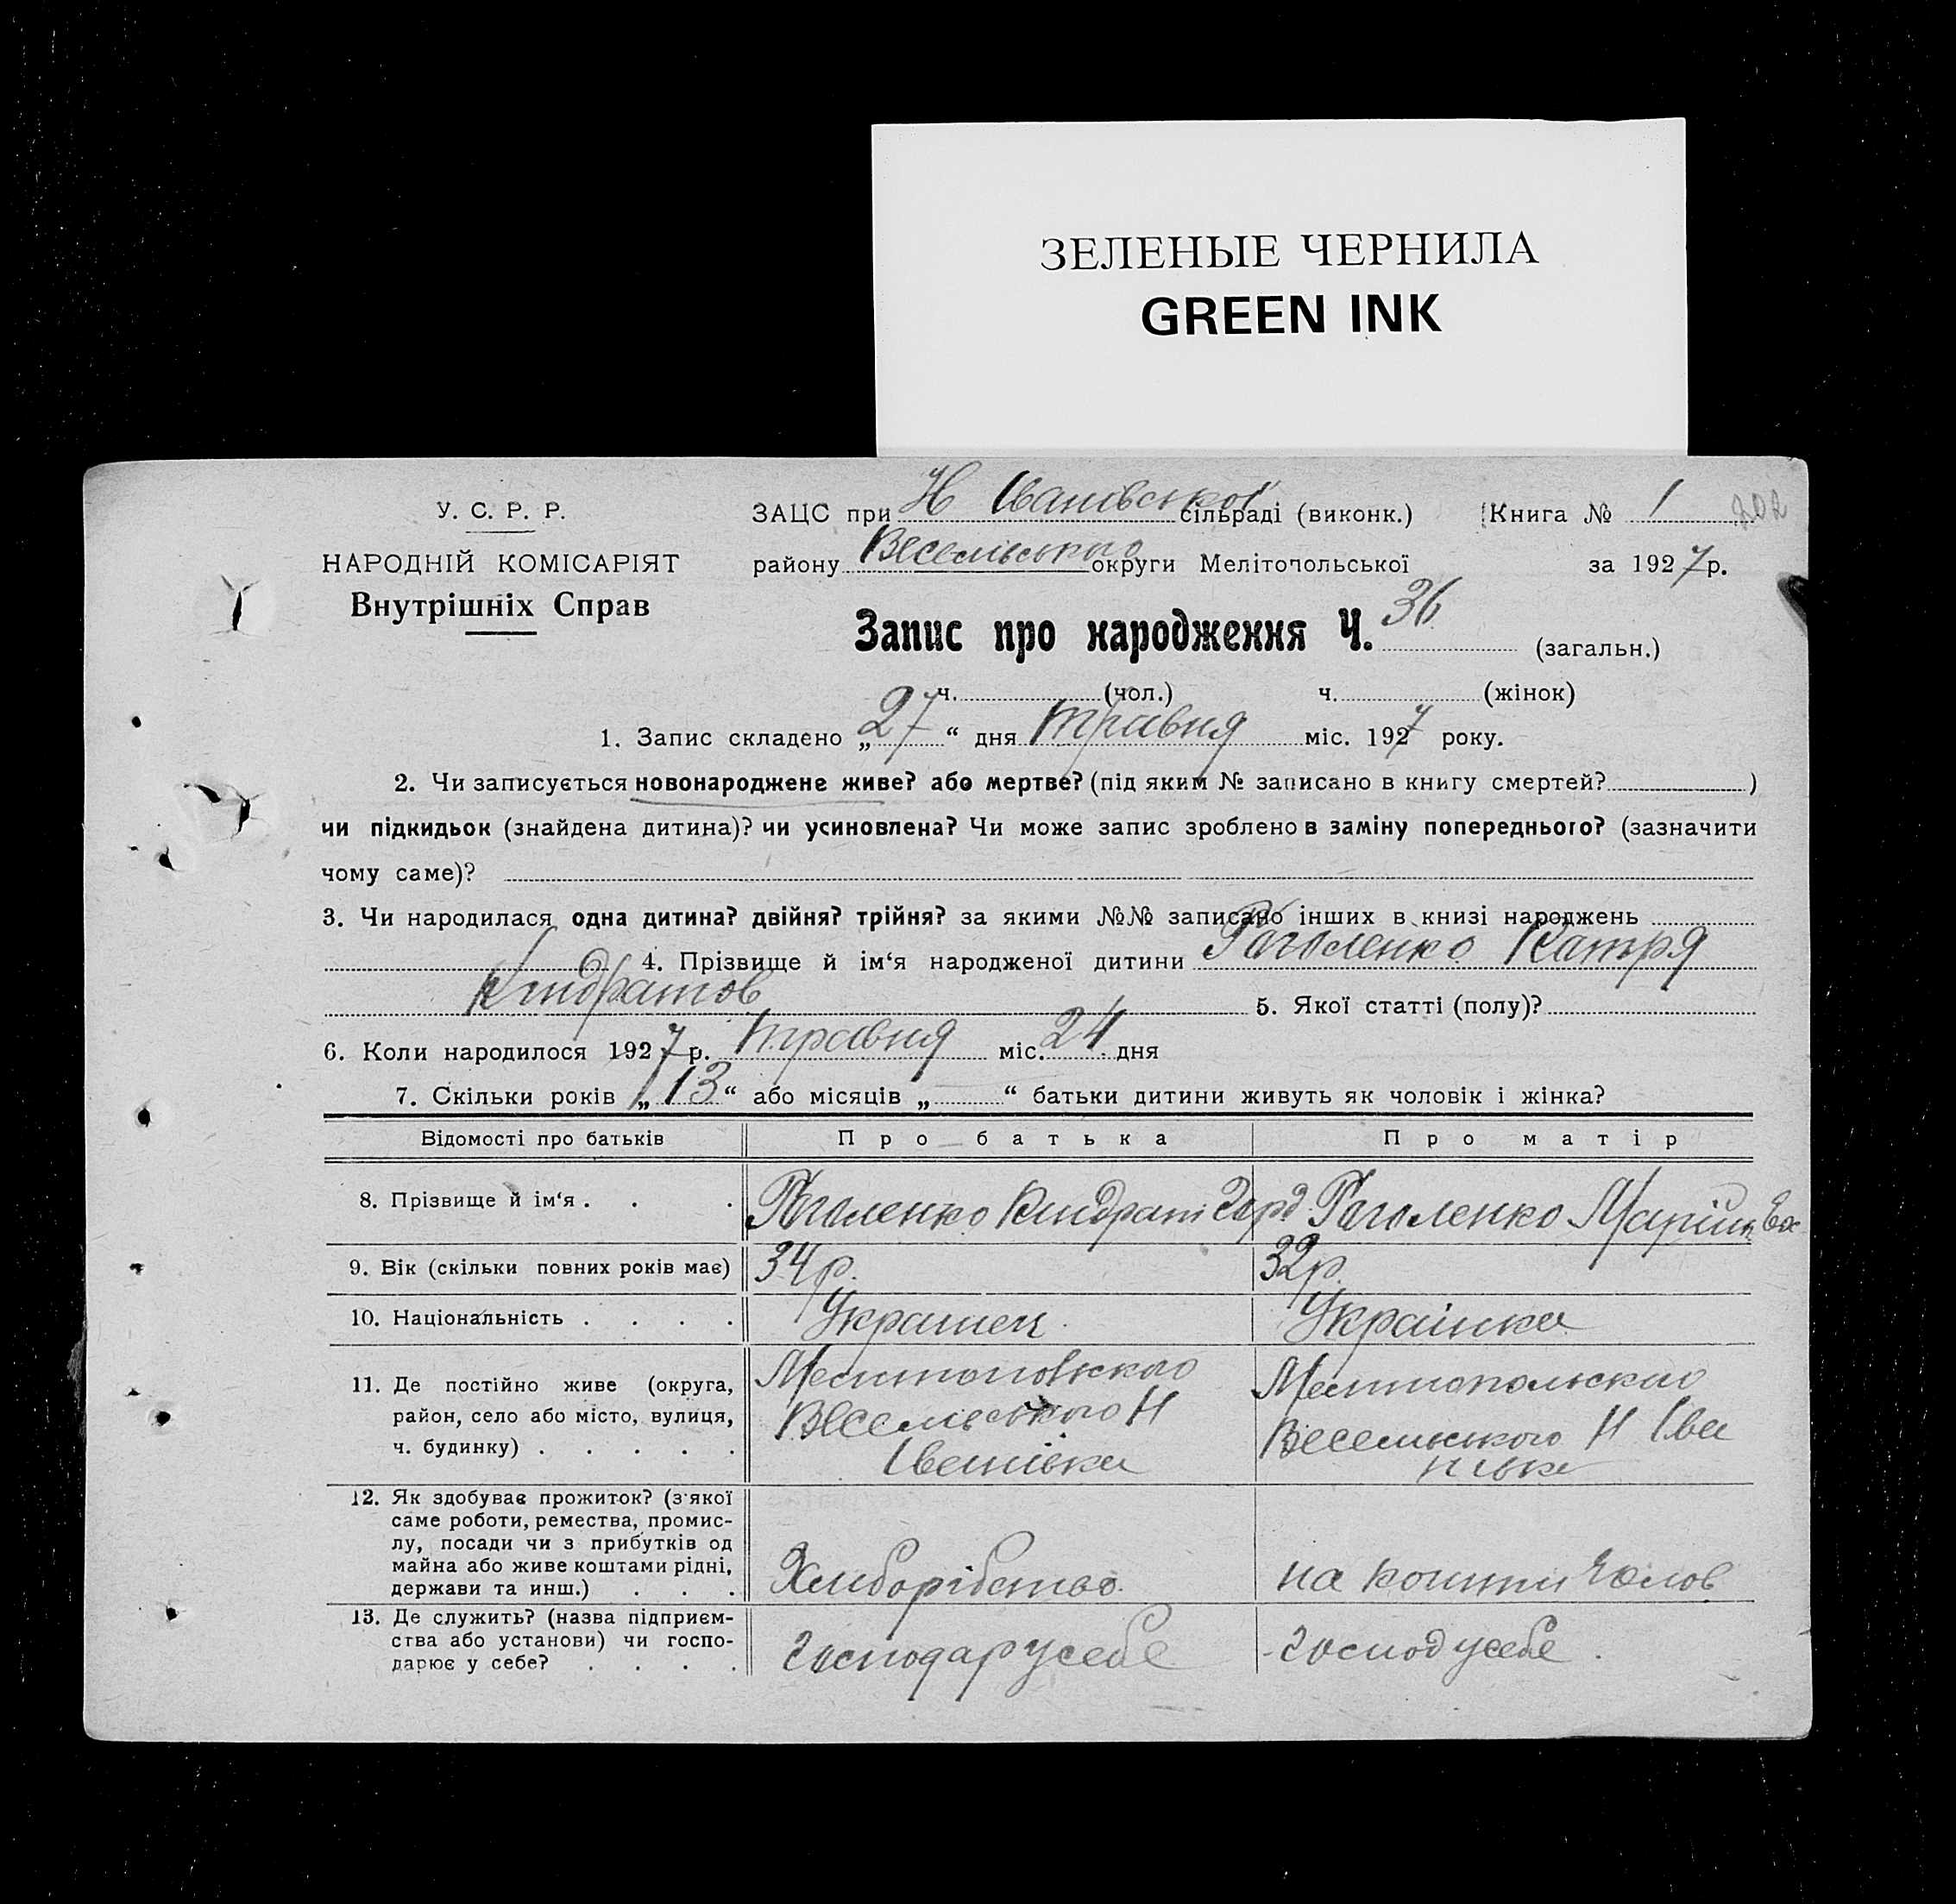 ЗЕЛЕНЫЕ ЧЕРНИЛА
GREEN INK
У. С. Р. Р.
НАРОДНІЙ КОМІСАРІЯТ
Внутрішніх Справ
ЗАЦС при Н Іванівської сільраді (виконк.) Книга № 1 202
району Веселівського округи Мелітопольської за 1927 р.
Запис про народження Ч. 36 (загальн.)
ч. (чол.) ч. (жінок)
1. Запис складено „27“ дня травня міс. 1927 року.
2. Чи записується новонароджене живе? або мертве? (під яким № записано в книгу смертей? )
чи підкидьок (знайдена дитина)? чи усиновлена? Чи може запис зроблено в заміну попереднього? (зазначити
чому саме)?
3. Чи народилася одна дитина? двійня? трійня? за якими №№ записано інших в книзі народжень
4. Прізвище й ім‘я народженої дитини Роголенко Катря
Киндратов 5. Якої статті (полу)?
6. Коли народилося 1927 р. травня міс. 24 дня
7. Скільки років „13“ або місяців „ “ батьки дитини живуть як чоловік і жінка?
Відомості про батьків Про батька Про матір
8. Прізвище й ім‘я . . . Роголенко Киндрат Горд Роголенко Марія
9. Вік (скільки повних років має) 34 р. 32 р.
10. Національність . . . . Украинец Украінка
11. Де постійно живе (округа, район, село або місто, вулиця, ч. будинку) . . . . .
Мелитопольского
Веселівського Н
Іванівка
Мелитопольского
Веселивського Н Іва
нівка
12. Як здобуває прожиток? (з якої
саме роботи, ремества, промис-
лу, посади чи з прибутків од
майна або живе коштами рідні,
держави та инш.) . . .
Хлиборібство
на кошти чолов
13. Де служить? (назва підприєм-
ства або установи) чи госпо-
дарює у себе? . . . .
господар у себе
господ у себе.